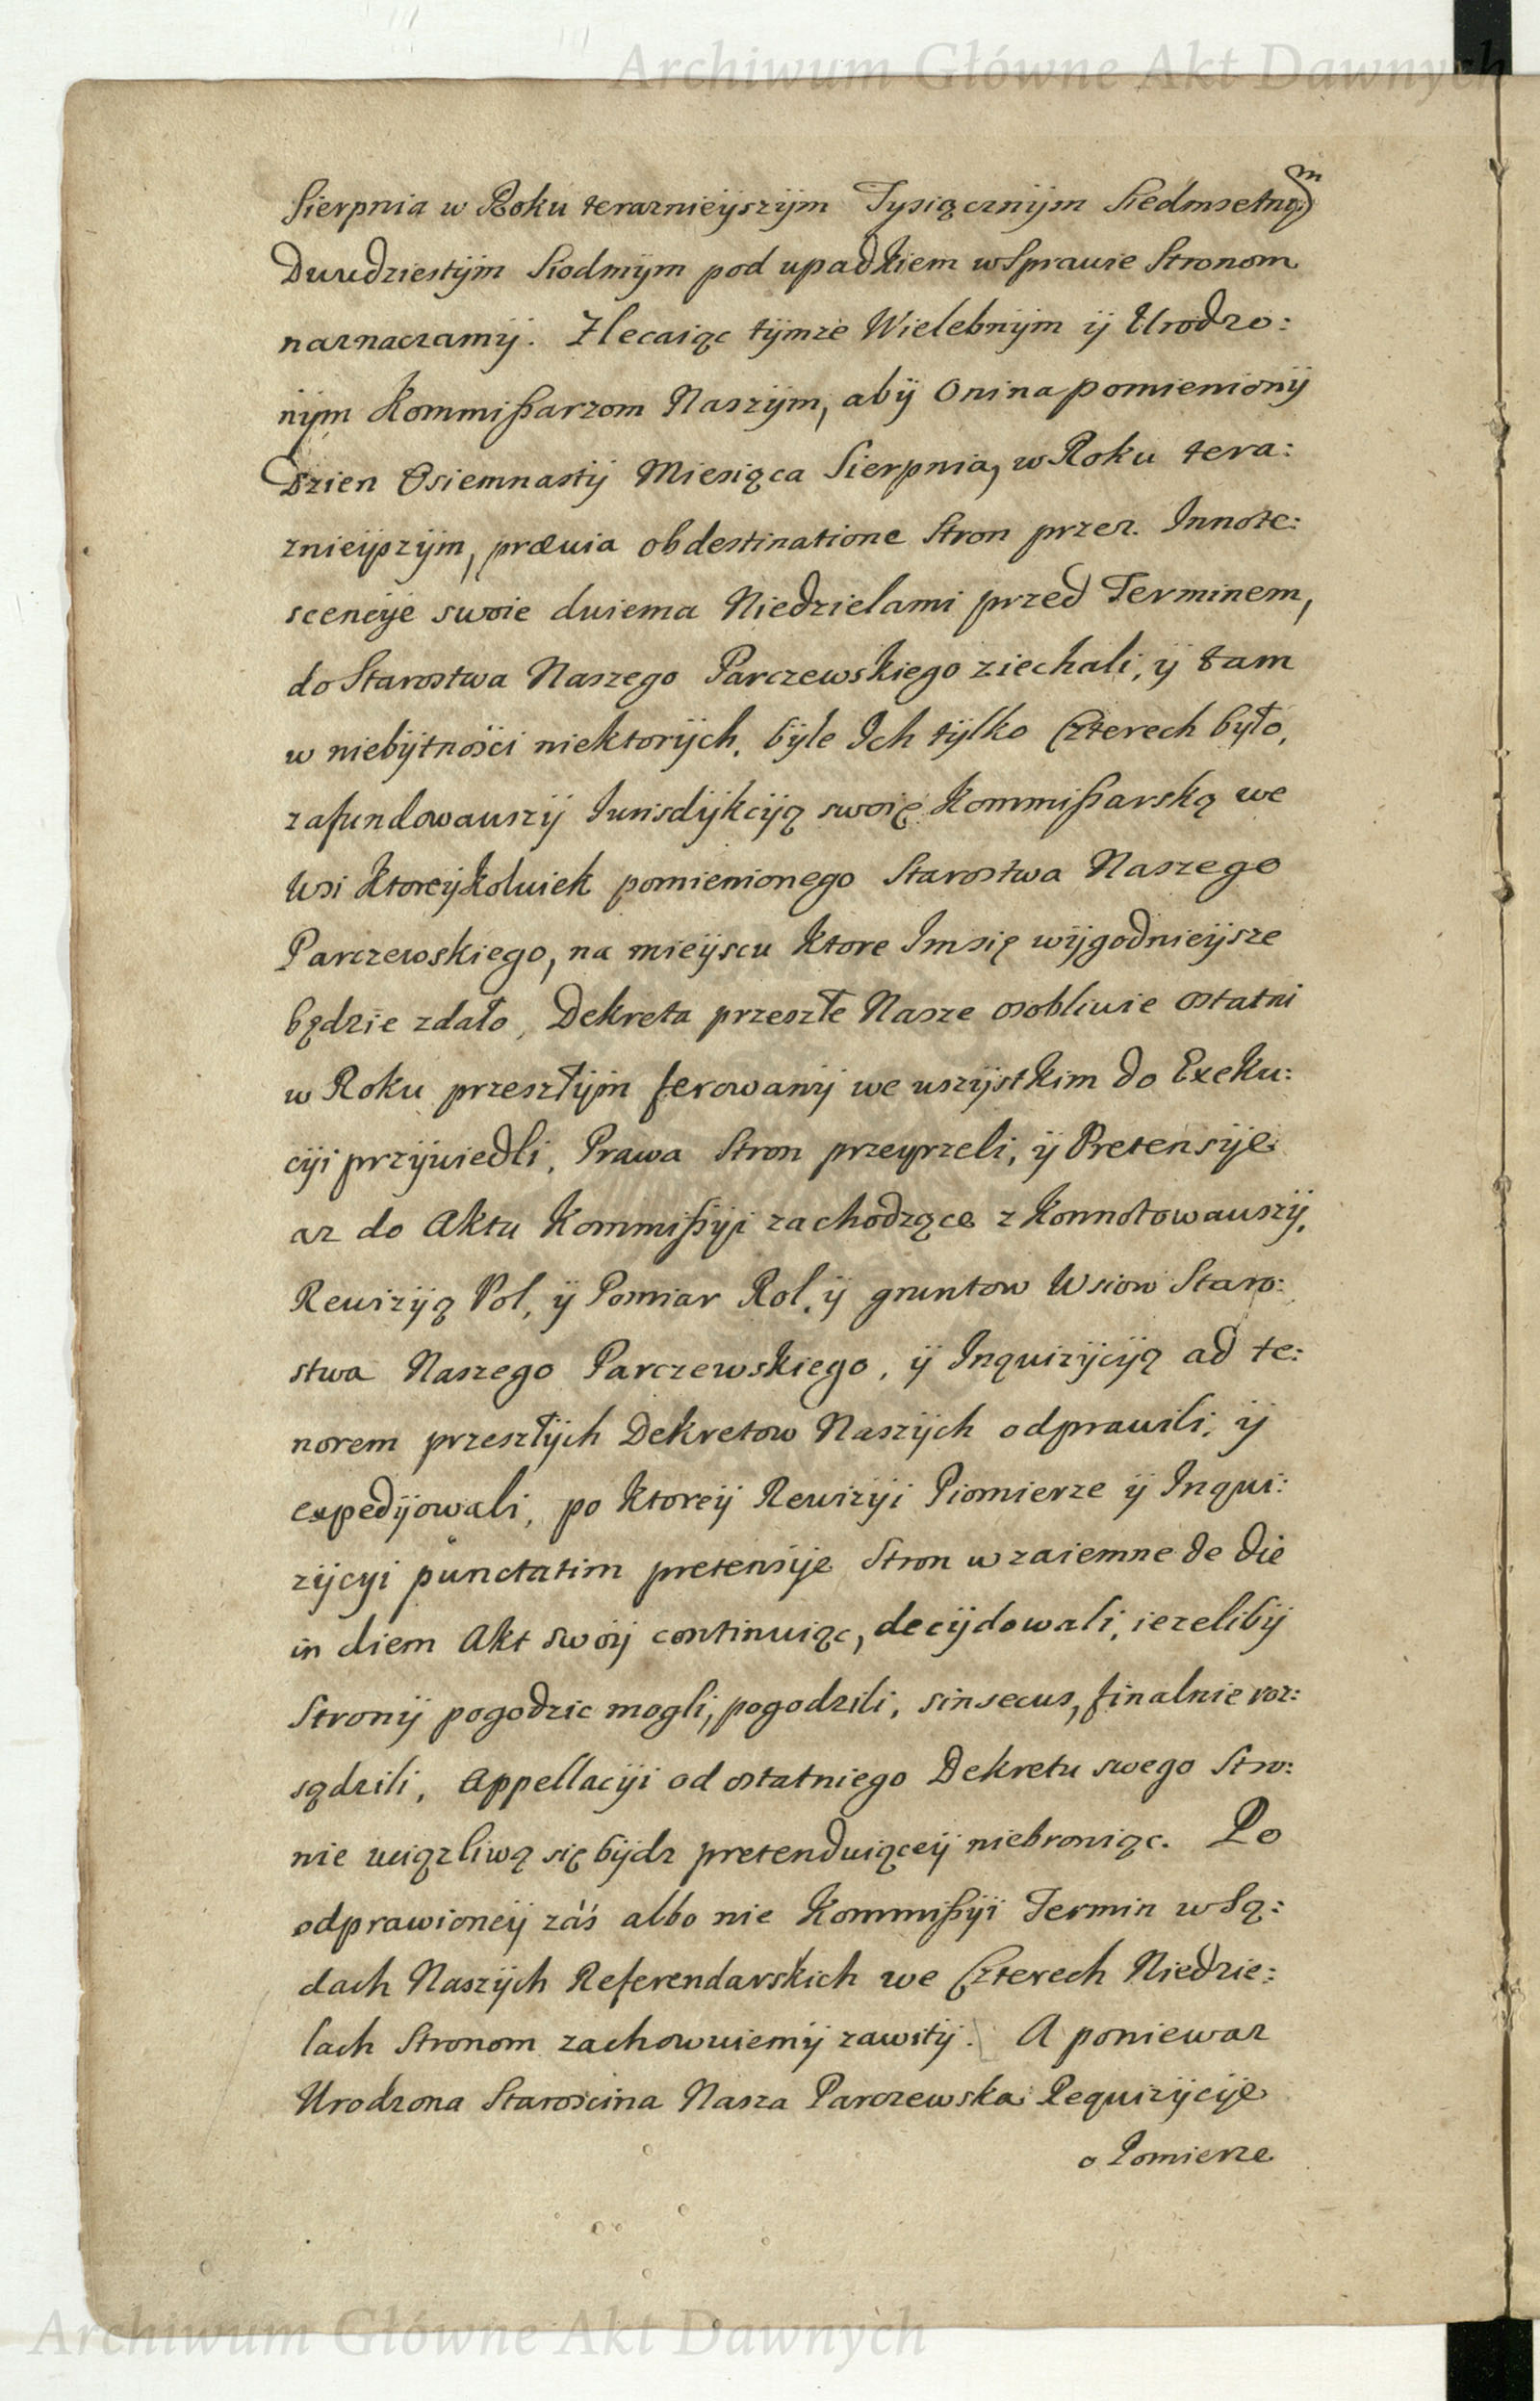 Archiwum Główne Akt Dawnych
Sierpnia w Roku terazniejszÿm Tysiącznÿm Siedmsetnym
Dwudziestÿm Siodmÿm pod upadkiem w Sprawie Stronom
naznaczamÿ. Zlecaiąc tÿmże Wielebnÿm ÿ Urodzo:
nÿm Kommißarzom Naszÿm, abÿ Oni na pomienionÿ
Dzien Osiemnastÿ Miesiąca Sierpnia, w Roku tera:
znieÿszÿm, prævia obdestinatione Stron przez Innote:
scencÿe swoie dwiema Niedzielami przed Terminem,
do Starostwa Naszego Parczewskiego ziechali, ÿ tam
w niebÿtności niektorÿch, bÿle Ich tÿlko Czterech bÿło,
zafundowawszÿ Iurisdÿkcÿą swoię Kommißarską we
Wsi ktoreÿkolwiek pomienionego Starostwa Naszego
Parczewskiego, na mieÿscu ktore Im się wÿgodnieÿsze
będzie zdało, Dekreta przeszłe Nasze osobliwie ostatni
w Roku przeszłÿm ferowanÿ we wszÿstkim do Exeku:
cÿi przÿwiedli, Prawa Stron przeÿrzeli, ÿ Pretensÿe
az do Aktu Kommißÿi zachodzące zkonnotowawszÿ,
Rewizÿą Pol, ÿ Pomiar Rol, ÿ gruntow Wsiow Staro:
stwa Naszego Parczewskiego, ÿ Inquizÿcÿą ad te:
norem przeszłÿch Dekretow Naszÿch odprawili, ÿ
expedÿowali, po ktoreÿ Rewizÿi Piomierze ÿ Inqui:
zÿcÿi punctatim pretensÿe Stron wzaiemne de die
in diem Akt swoÿ continuiąc, decÿdowali, iezelibÿ
Stronÿ pogodzic mogli, pogodzili, sin secus, finalnie roz:
sądzili, Appellacÿi od ostatniego Dekretu swego Stro:
nie uciązliwą się bÿdz pretenduiąceÿ niebroniąc. Po
odprawioneÿ záś albo nie Kommißÿi Termin w Są:
dach Naszÿch Referendarskich we Czterech Niedzie:
lach Stronom zachowuiemÿ zawitÿ. A poniewaz
Urodzona Starościna Nasza Parczewska Requizÿcÿe
o Pomierze
Archiwum Główne Akt Dawnych